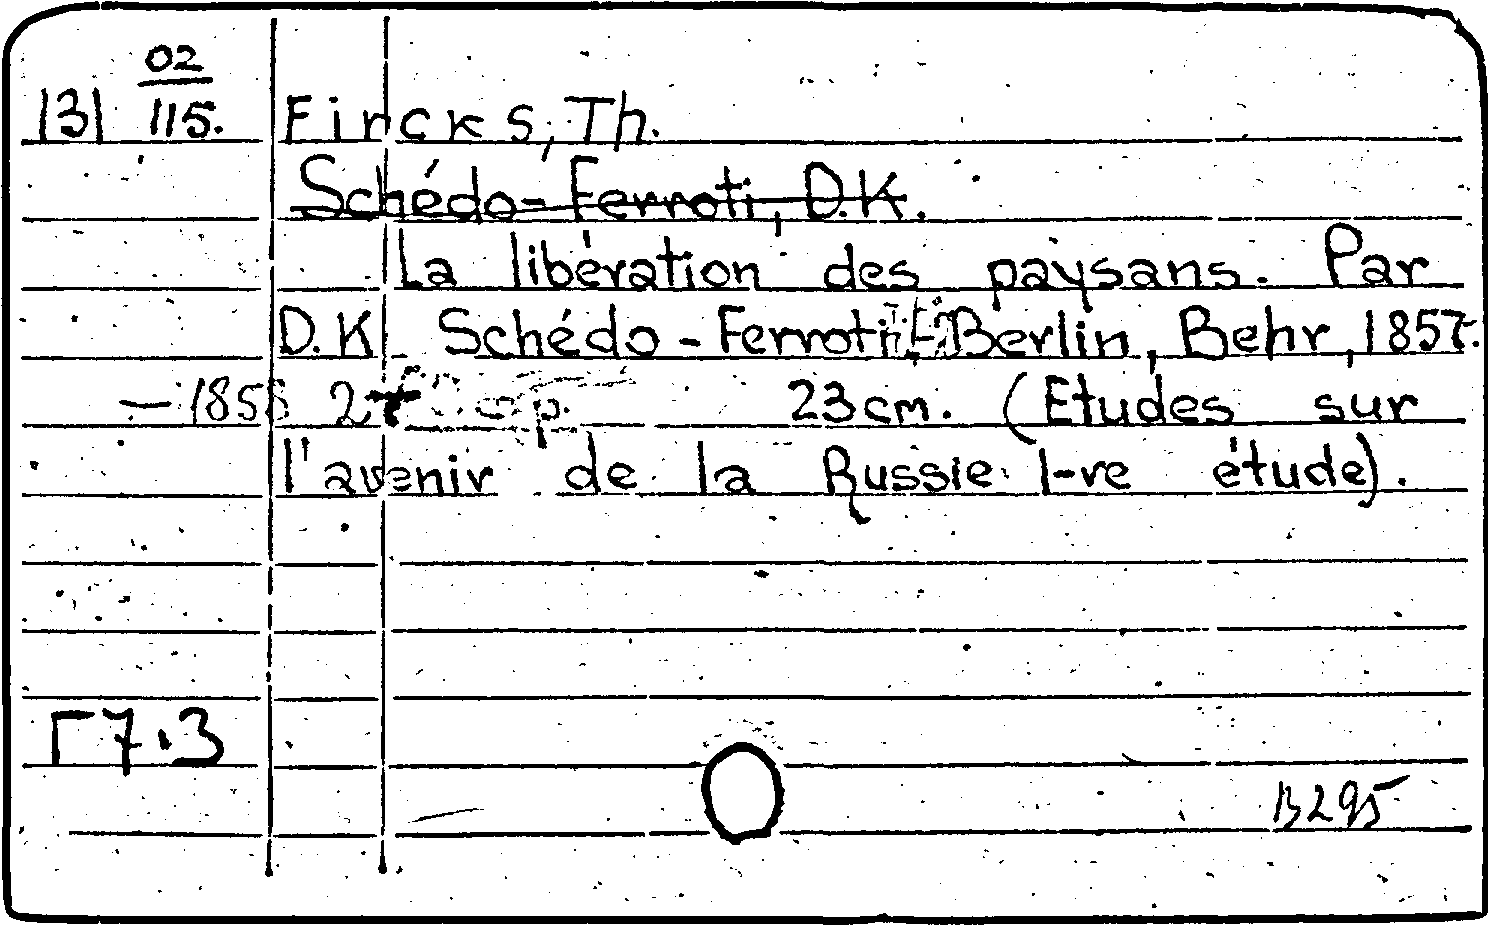 02
131 115. Fircks, Th.
Schédo-Ferroti, D.K.
La libération des paysans. Par
D.K. Schédo-Ferroti Berlin, Behr, 1857.
— 1858 2 p. 23cm. (Etudes sur
l'avenir de la Russie 1-re étude).
Г7.3
B295